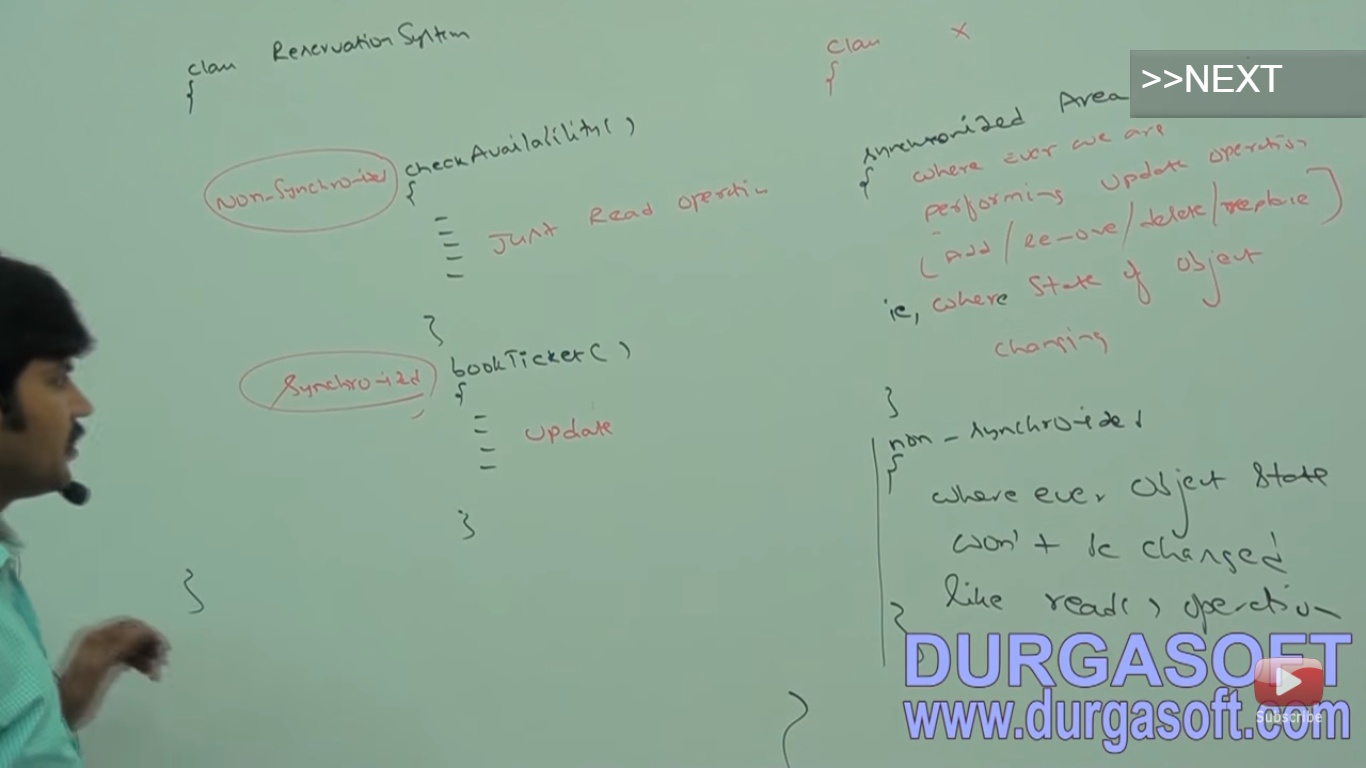 class ReservationSystem
{
Non-Synchronized checkAvailability()
{
Just Read operation
}
Synchronized bookTicket()
{
Update
}
}
class X
{
synchronized Area
{
where ever we are
performing update operation
(Add/Remove/delete/replace)
ie, where state of object
changing
}
non-synchronized
{
where ever object state
won't be changed
like read() operation
}
}
>>NEXT
DURGASOFT
www.durgasoft.com
Subscribe